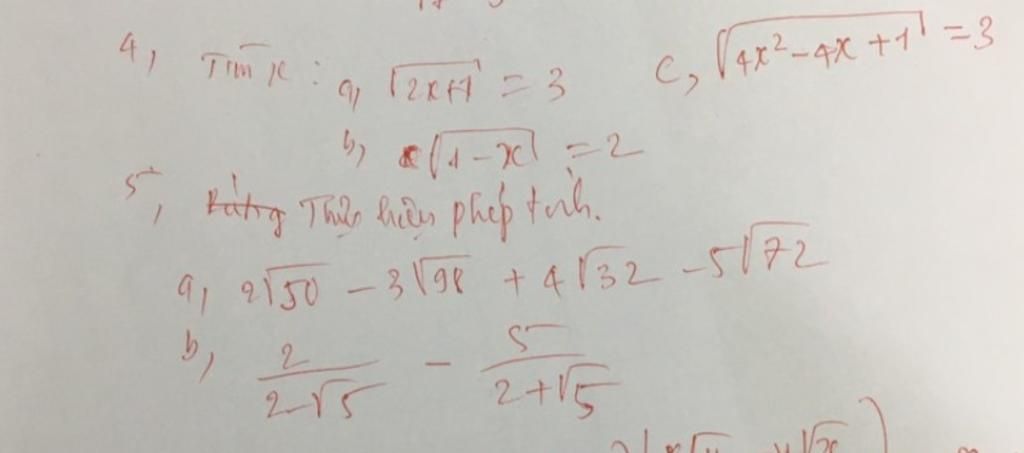 4, Tìm x : a, √(2x+1) = 3 c, √(4x² - 4x + 1) = 3
b, √(1 - x) = 2
5, Thực hiện phép tính.
a, 2√50 - 3√98 + 4√32 - 5√72
b, 2/(2-√5) - 5/(2+√5)